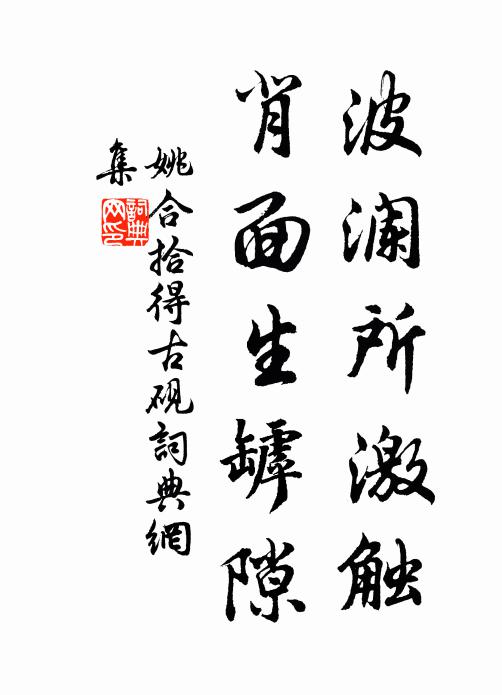 波澜所激触
背面生罅隙
姚合拾得古砚詞典網
集
詞典网印